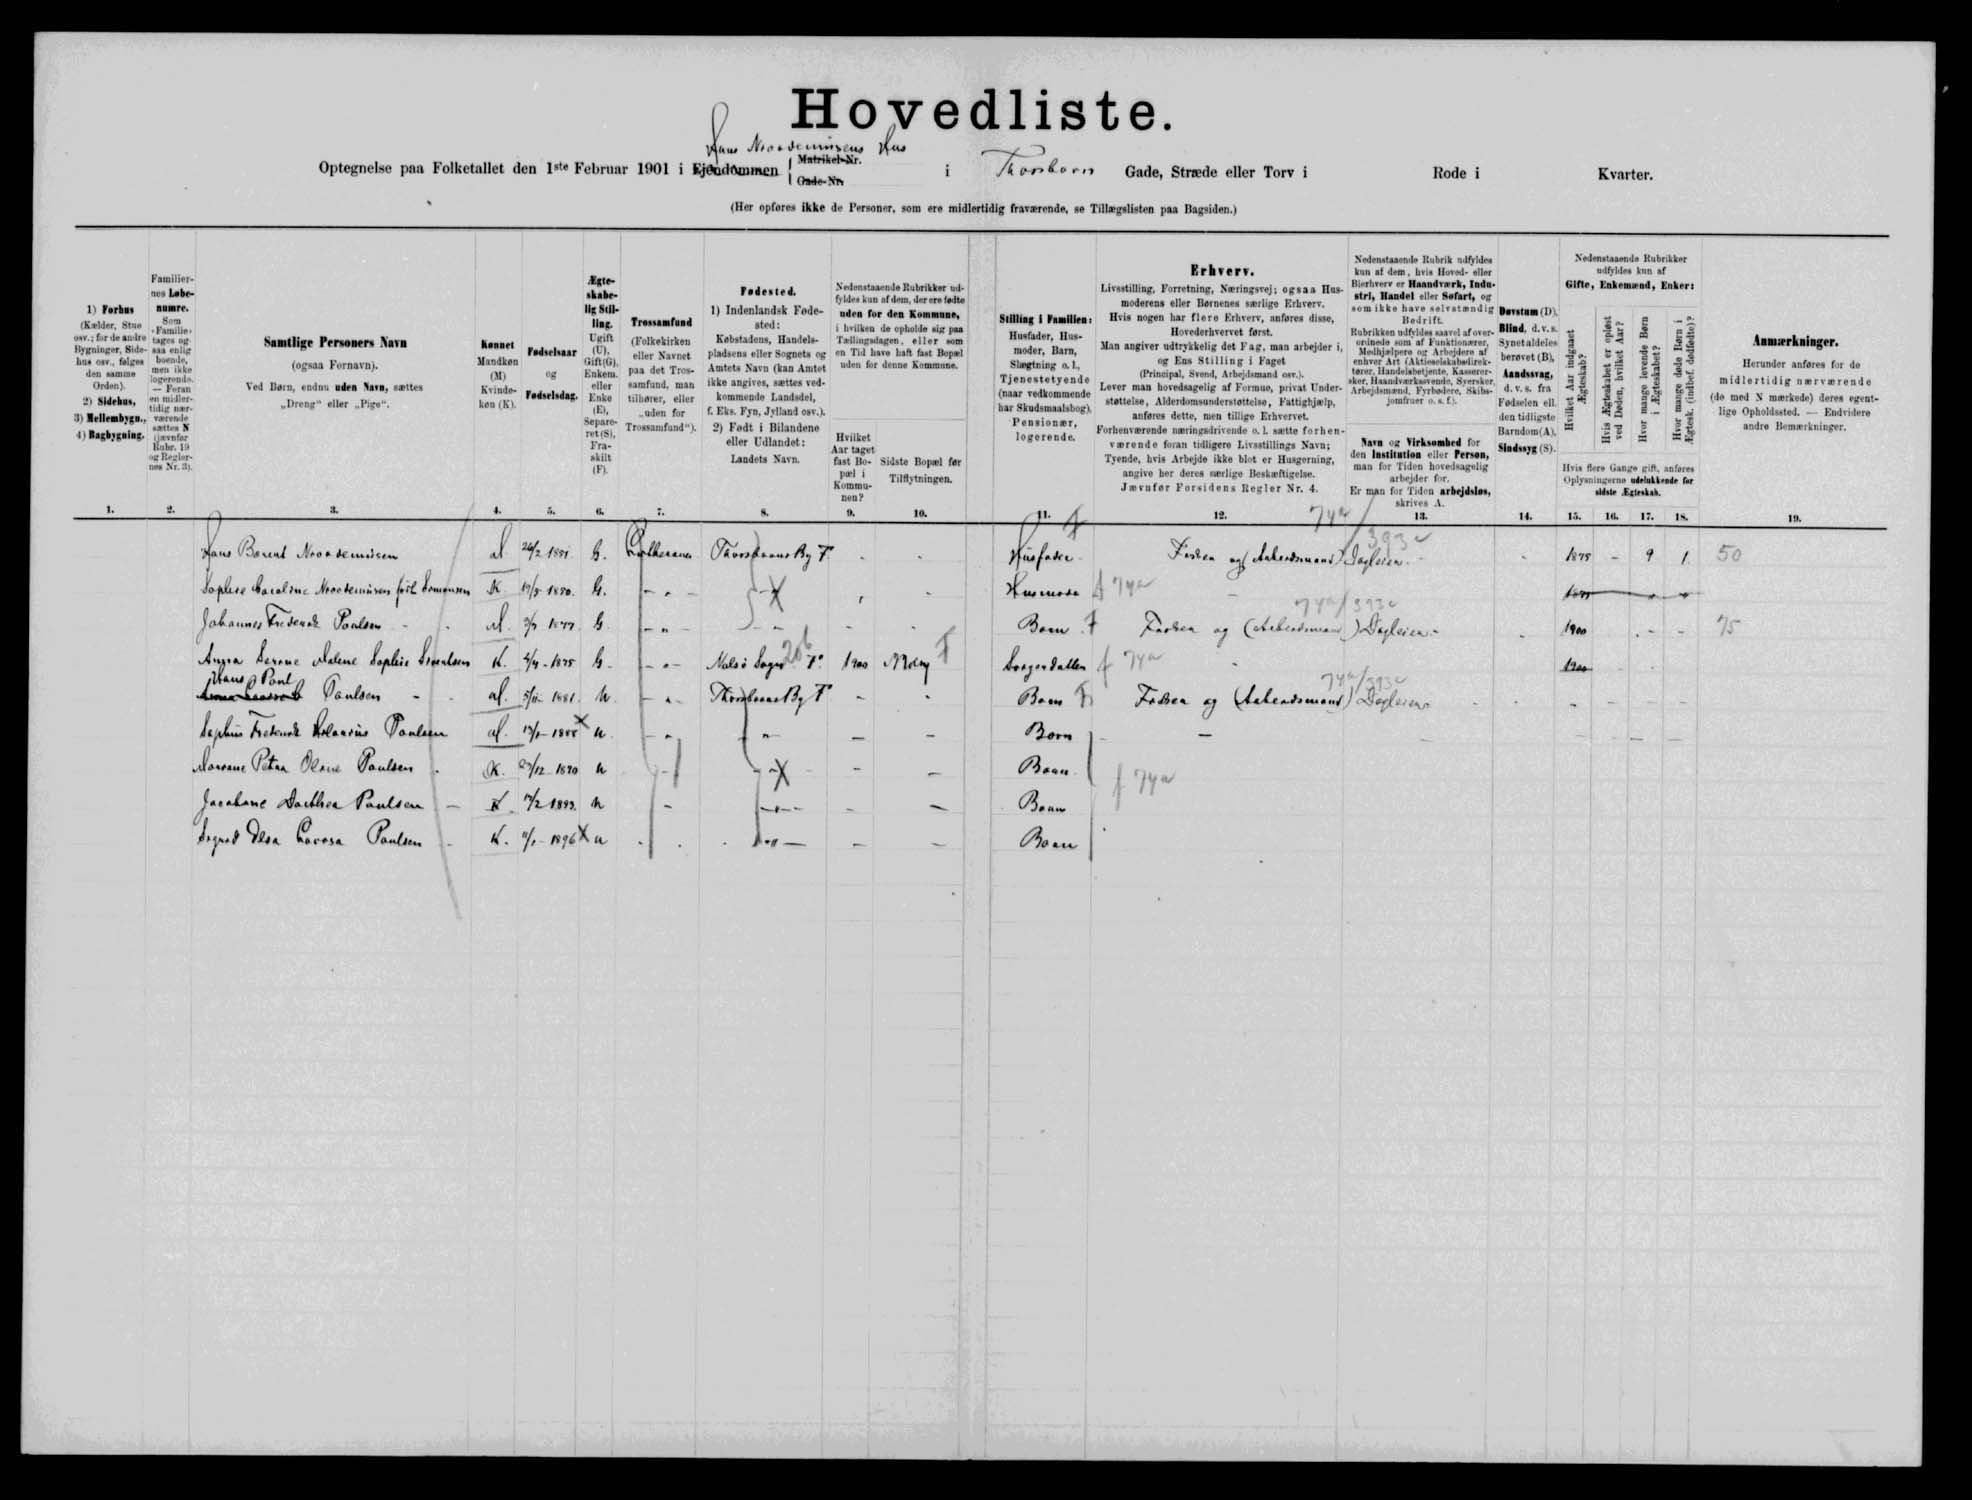 Hovedliste.
Hans Hus
Optegnelse paa Folketallet den 1ste Februar 1901 i Ejendommen Matrikel-Nr. Gade-Nr. i Thorshavn Gade, Stræde eller Torv i Rode i Kvarter.
(Her opføres ikke de Personer, som ere midlertidig fraværende, se Tillægslisten paa Bagsiden.)
1) Forhus
(Kælder, Stue
osv.; for de andre
Bygninger, Side-
hus osv., følges
den samme
Orden).
2) Sidehus,
3) Mellembygn.,
4) Bagbygning.
1.
Familier-
nes Løbe-
numre.
Som
»Familie»
tages og-
saa enlig
boende,
men ikke
logerende.
— Foran
en midler-
tidig nær-
værende
sættes N
(jævnfør
Rubr. 19
og Regler-
nes Nr. 3).
2.
Samtlige Personers Navn
(ogsaa Fornavn).
Ved Børn, endnu uden Navn, sættes
„Dreng“ eller „Pige“.
3.
Kønnet
Mandkøn
(M)
Kvinde-
køn (K).
4.
Fødselsaar
og
Fødselsdag.
5.
Ægte-
skabe-
lig Stil-
ling.
Ugift
(U),
Gift(G),
Enkem.
eller
Enke
(E),
Separe-
ret (S),
Fra-
skilt
(F).
6.
Trossamfund
(Folkekirken
eller Navnet
paa det Tros-
samfund, man
tilhører, eller
„uden for
Trossamfund“).
7.
Fødested.
1) Indenlandsk Føde-
sted:
Købstadens, Handels-
pladsens eller Sognets og
Amtets Navn (kan Amtet
ikke angives, sættes ved-
kommende Landsdel,
f. Eks. Fyn, Jylland osv.).
2) Født i Bilandene
eller Udlandet:
Landets Navn.
8.
Nedenstaaende Rubrikker ud-
fyldes kun af dem, der ere fødte
uden for den Kommune,
i hvilken de opholde sig paa
Tællingsdagen, eller som
en Tid have haft fast Bopæl
uden for denne Kommune.
Hvilket
Aar taget
fast Bo-
pæl i
Kommu-
nen?
9.
Sidste Bopæl før
Tilflytningen.
10.
Stilling i Familien:
Husfader, Hus-
moder, Barn,
Slægtning o. l.,
Tjenestetyende
(naar vedkommende
har Skudsmaalsbog),
Pensionær,
logerende.
11.
Erhverv.
Livsstilling, Forretning, Næringsvej; ogsaa Hus-
moderens eller Børnenes særlige Erhverv.
Hvis nogen har flere Erhverv, anføres disse,
Hovederhvervet først.
Man angiver udtrykkelig det Fag, man arbejder i,
og Ens Stilling i Faget
(Principal, Svend, Arbejdsmand osv.).
Lever man hovedsagelig af Formue, privat Under-
støttelse, Alderdomsunderstøttelse, Fattighjælp,
anføres dette, men tillige Erhvervet.
Forhenværende næringsdrivende o. l. sætte forhen-
værende foran tidligere Livsstillings Navn;
Tyende, hvis Arbejde ikke blot er Husgerning,
angive her deres særlige Beskæftigelse.
Jævnfør Forsidens Regler Nr. 4.
12.
Nedenstaaende Rubrik udfyldes
kun af dem, hvis Hoved- eller
Bierhverv er Haandværk, Indu-
stri, Handel eller Søfart, og
som ikke have selvstændig
Bedrift.
Rubrikken udfyldes saavel af over-
ordnede som af Funktionærer,
Medhjælpere og Arbejdere af
enhver Art (Aktieselskabsdirek-
tører, Handelsbetjente, Kasserer-
sker, Haandværkssvende, Syersker,
Arbejdsmænd, Fyrbødere, Skibs-
jomfruer o. s. f.).
Navn og Virksomhed for
den Institution eller Person,
man for Tiden hovedsagelig
arbejder for.
Er man for Tiden arbejdsløs,
skrives A.
13.
Døvstum (D),
Blind, d. v. s.
Synet aldeles
berøvet (B),
Aandssvag,
d. v. s. fra
Fødselen ell.
den tidligste
Barndom(A),
Sindssyg (S).
14.
Nedenstaaende Rubrikker
udfyldes kun af
Gifte, Enkemænd, Enker:
Hvilket Aar indgaaet
Ægteskab?
Hvis Ægteskabet er opløst
ved Døden, hvilket Aar?
Hvor mange levende Børn
i Ægteskabet?
Hvor mange døde Børn i
Ægtesk. (indbef. dødfødte)?
Hvis flere Gange gift, anføres
Oplysningerne udelukkende for
sidste Ægteskab.
15. 16. 17. 18.
Anmærkninger.
Herunder anføres for de
midlertidig nærværende
(de med N mærkede) deres egent-
lige Opholdssted. — Endvidere
andre Bemærkninger.
19.
74a/393c
Hans M G. Thorshavns By F Husfader Fisker og (Arbeidsmand) Dagleier 1875 - 9 1 50
Sophie Caroline K G. Husmoder f 74a
74a/393c
Johannes Frederik Poulsen M G Barn F Fisker og (Arbeidsmand) Dagleier 1900 - - - 75
Malene Sophie K. G Nolsø Sogn F 206 1900 f 74a 1900
Hans Poul 74a/393c
Poulsen M. U Thorshavns By F Barn F Fisker og (Arbeidsmand) Dagleier
Sophus Frederik Poulsen M. 1888 U Barn
Petra Poulsen K. 1890 U Barn
f 74a
Dorthea Poulsen K 1893 U Barn
Poulsen K. 1896 U Barn